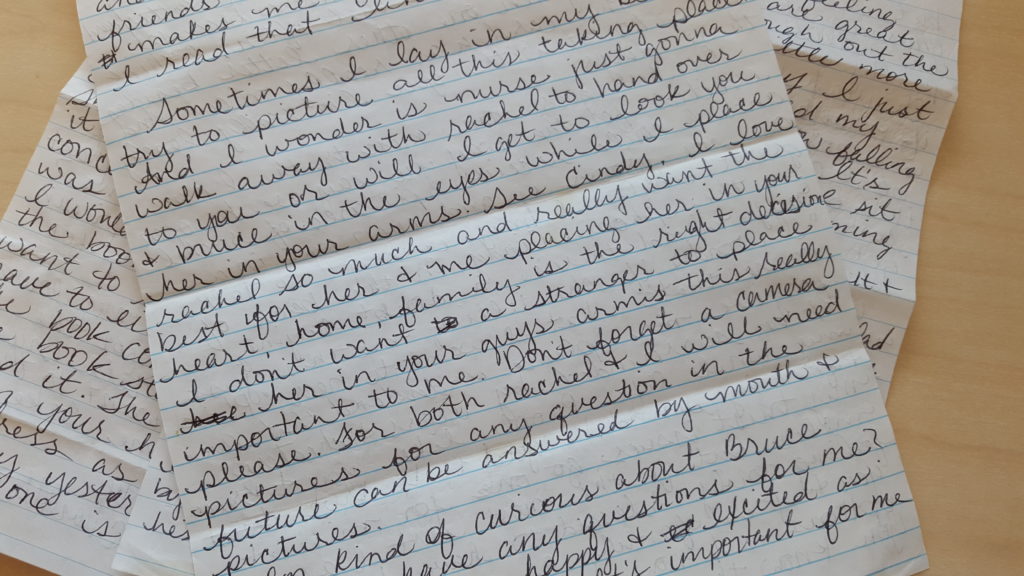 friends makes me
makes
I read that
Sometimes I lay in my
try to picture all this taking place
And I wonder is nurse just gonna
walk away with rachel to hand over
to you or will I get to look you
& bruce in the eyes while I place
her in your arms. See Cindy, I love
rachel so much and really want the
best for her & me placing her in your
heart, home, family is the right decision
I don't want a stranger to place
her in your guys arms this really
important to me. Don't forget a camera
please. For both rachel & I will need
pictures for any question in the
future can be answered by mouth &
pictures.
kind of curious about Bruce.
have any questions for me?
happy & excited as
important for me
it
conc
was
I won
the boo
want to
have to
book co
book st
d it. The
your h
ress as
yester
one is
by
he
feeling
are great
out the
more
I just
my
falling
It's
sit
ning